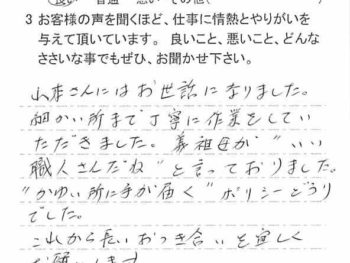 3 お客様の声を聞くほど、仕事に情熱とやりがいを
与えて頂いています。 良いこと、悪いこと、どんな
ささいな事でもぜひ、お聞かせ下さい。
山本さんにはお世話になりました。
細かい所まで丁寧に作業をしてい
ただきました。義祖母が“いい
職人さんだね”と言っておりました。
“かゆい所に手が届く”ポリシーどうり
でした。
これから長いおつき合いを宜しく
お願いします